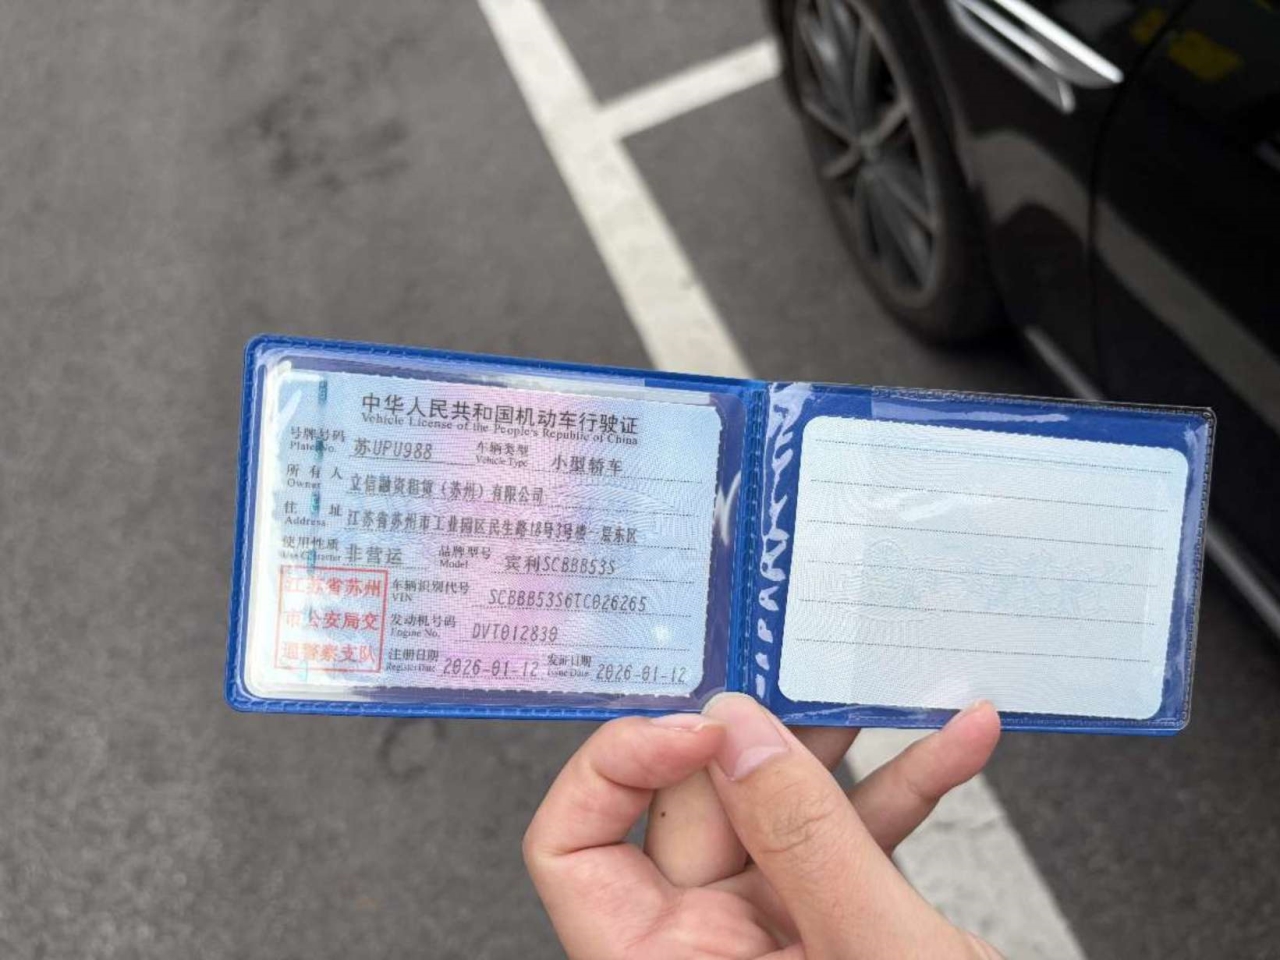 中华人民共和国机动车行驶证
Vehicle License of the People's Republic of China
号牌号码 苏UPU988 车辆类型 小型轿车
Plate No. Vehicle Type
所有人 立信融资租赁（苏州）有限公司
Owner
住址 江苏省苏州市工业园区民生路18号3号楼一层东区
Address
使用性质 非营运 品牌型号 宾利SCBBB53S
Use Character Model
江苏省苏州
市公安局交
通警察支队
车辆识别代号 SCBBB53S6TC026265
VIN
发动机号码 DVT012839
Engine No.
注册日期 2026-01-12 发证日期 2026-01-12
Register Date Issue Date